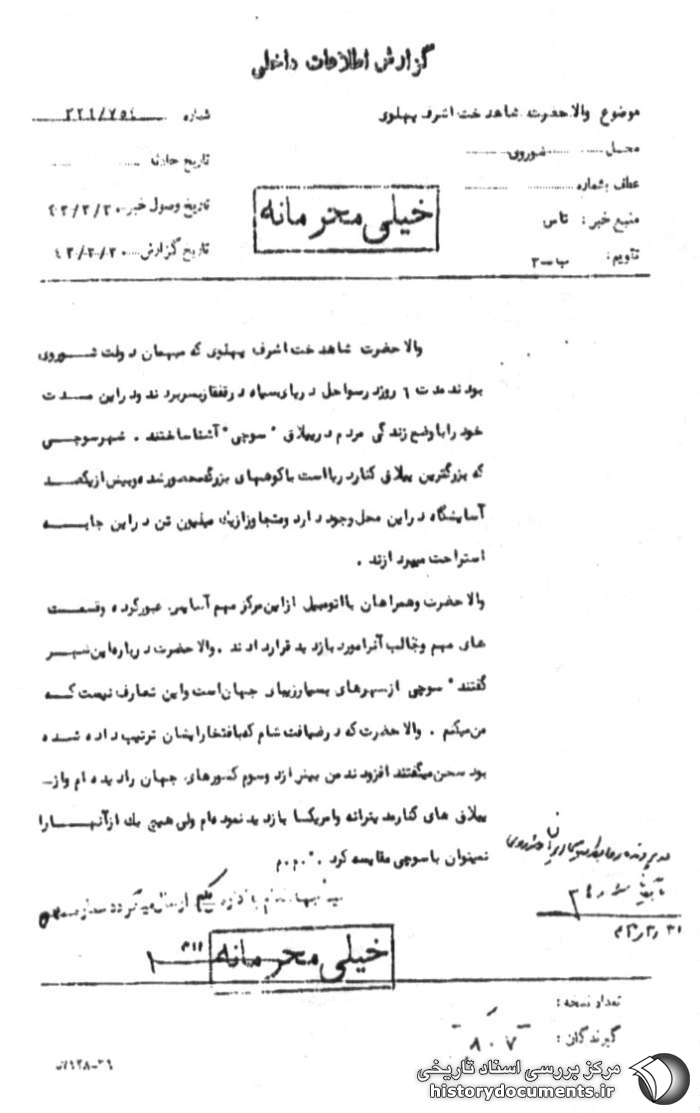 گزارش اطلاعات داخلی
موضوع والاحضرت شاهدخت اشرف پهلوی
شماره ۳۲۱/۷۵۱
محل شوروی
تاریخ حادثه
عطف بشماره
تاریخ وصول خبر ۴۳/۳/۳۰
خیلی محرمانه
منبع خبر : تاس
تاریخ گزارش ۴۳/۳/۳۰
تقویم : ب-۳
والاحضرت شاهدخت اشرف پهلوی که میهمان دولت شوروی
بودند مدت ۶ روز در سواحل دریای سیاه در قفقاز بسر بردند و در این مدت
خود را با وضع زندگی مردم در ییلاق "سوچی" آشنا ساختند . شهر سوچی
که بزرگترین ییلاق کنار دریا است با کوههای بزرگ محصور شده و بیش از یکصد
آسایشگاه در این محل وجود دارد و متجاوز از یک میلیون تن در این جا به
استراحت میپردازند .
والاحضرت و همراهان با اتومبیل از این مرکز مهم آسایش عبور کرده و قسمت
های مهم و جالب آنرا مورد بازدید قرار دادند . والاحضرت درباره این شهر
گفتند "سوچی از شهرهای بسیار زیبای جهان است و این تعارف نیست که
من میکنم . والاحضرت که در ضیافت شام که بافتخار ایشان ترتیب داده شده
بود سخن میگفتند افزودند من بیش از دو سوم کشورهای جهان را دیده ام و از
ییلاق های کنار مدیترانه و امریکا بازدید نموده ام ولی هیچ یک از آنها را
نمیتوان با سوچی مقایسه کرد ." م.م
خیلی محرمانه
تعداد نسخه :
گیرندگان :
۸۰۷
مرکز بررسی اسناد تاریخی
historydocuments.ir